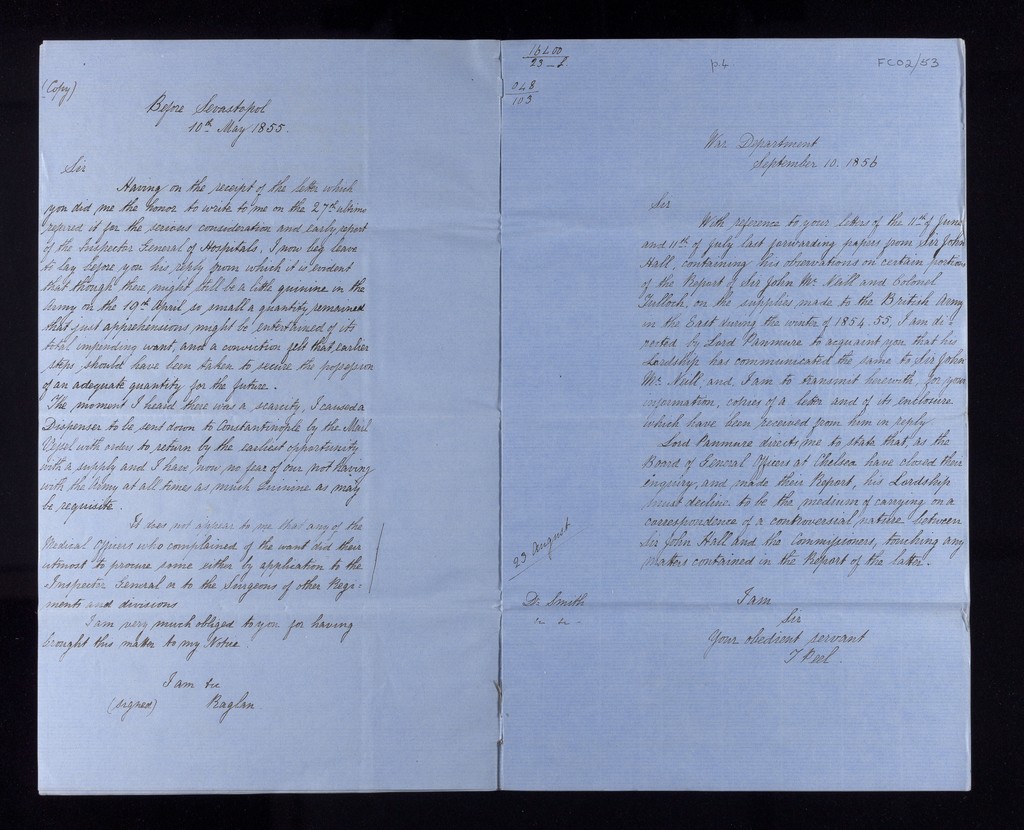 (Copy)
Before Sevastopol
10th May 1855.
Sir
Having on the receipt of the letter which
you did me the honor to write to me on the 27th ultimo
refered it for the serious consideration and early report
of the Inspector General of Hospitals, I now beg leave
to lay before you his reply from which it is evident
that though there might still be a little quinine in the
Army on the 19th April, so small a quantity remained
that just apprehensions might be entertained of its
total impending want, and a conviction felt that earlier
steps should have been taken to secure the possession
of an adequate quantity for the future.
The moment I heard there was a scarcity, I caused a
Dispenser to be sent down to Constantinople by the Mail
Vessel with orders to return by the earliest opportunity
with a supply and I have now no fear of our not having
with the Army at all times as much Quinine as may
be requisite.
It does not appear to me that any of the
Medical Officers who complained of the want did their
utmost to procure some either by application to the
Inspector General or to the Surgeons of other Regi-
ments and divisions
I am very much obliged to you for having
brought this matter to my Notice.
I am &c
(signed) Raglan
23
048
103
p4.
FC02/53
War Department
September 10. 1856
Sir
With reference to your letters of the 11th of June
and 11th of July last forwarding papers from Sir John
Hall, containing his observations on certain portions
of the Report of Sir John Mc Neill and Colonel
Tulloch, on the supplies made to the British Army
in the East during the winter of 1854.55, I am di-
rected by Lord Panmure to acquaint you that his
Lordship has communicated the same to Sir John
Mc Neill and, I am to transmit herewith, for your
information, copies of a letter and of its enclosure
which have been received from him in reply
Lord Panmure directs me to state that, as the
Board of General Officers at Chelsea have closed their
inquiry, and made their Report, his Lordship
must decline to be the medium of carrying on a
correspondence of a controversial nature between
Sir John Hall and the Commissioners, touching any
matters contained in the Report of the latter.
23 August
I am
Dr. Smith
Sir
Your obedient servant
Peel.